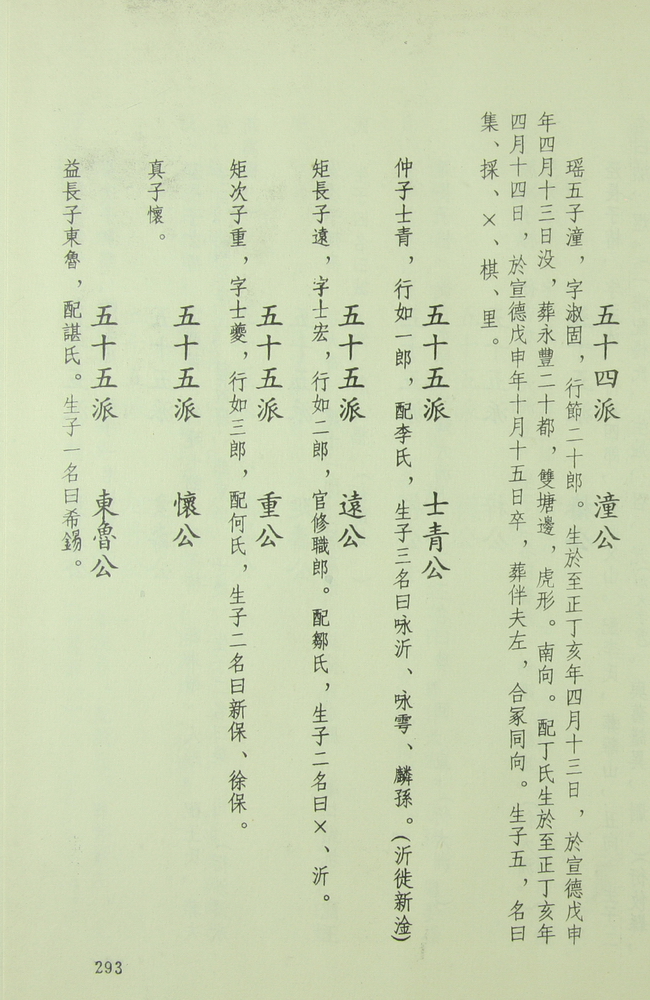 五十四派　潼公
瑶五子潼，字淑固，行節二十郎。生於至正丁亥年四月十三日，於宣德戊申
年四月十三日没，葬永豐二十都，雙塘邊，虎形。南向。配丁氏生於至正丁亥年
四月十四日，於宣德戊申年十月十五日卒，葬伴夫左，合冢同向。生子五，名曰
集、採、×、棋、里。
五十五派　士青公
仲子士青，行如一郎，配李氏，生子三名曰咏沂、咏雩、麟孫。(沂徙新淦)
五十五派　遠公
矩長子遠，字士宏，行如二郎，官修職郎。配鄒氏，生子二名曰×、沂。
五十五派　重公
矩次子重，字士夔，行如三郎，配何氏，生子二名曰新保、徐保。
五十五派　懷公
真子懷。
五十五派　東魯公
益長子東魯，配諶氏。生子一名曰希錫。
293